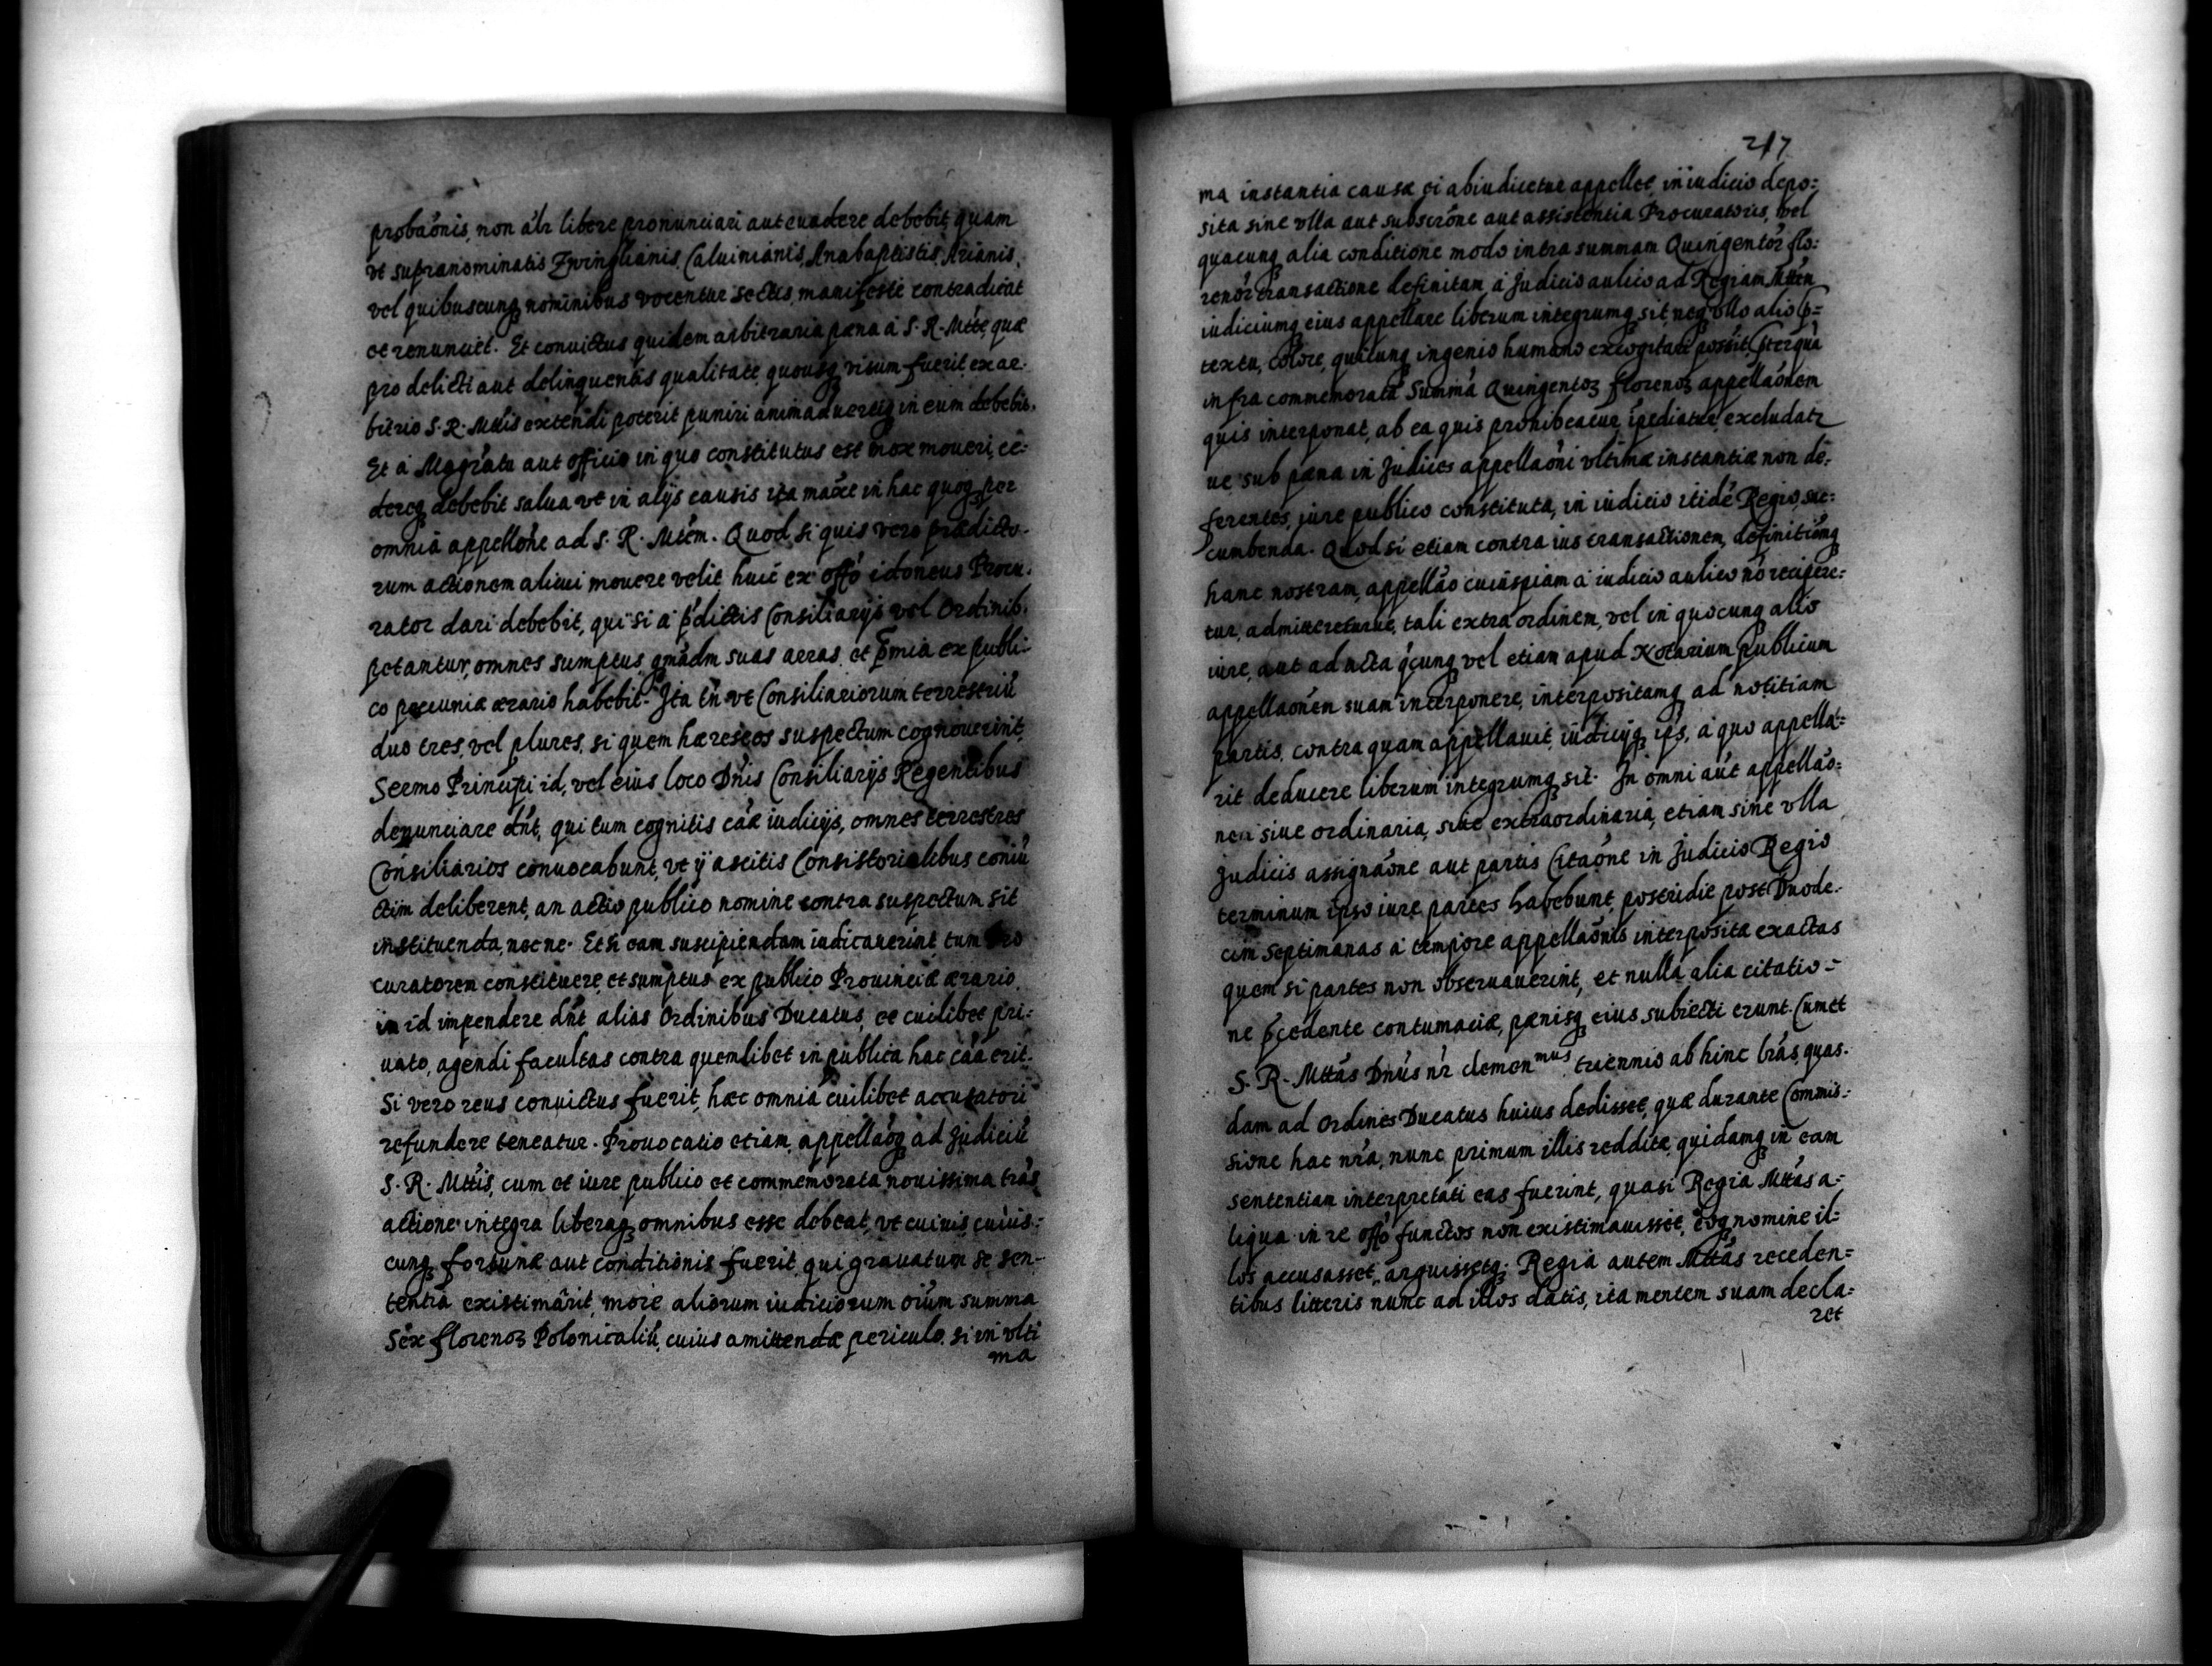 probaónis, non al'r libere pronunciari aut euadere debebit, quam
vt supranominatis Zwinglianis, Caluinianis, Anabaptistis, Arianis,
vel quibuscunq nominibus vocentur sectis, manifeste contradicat
et renunciet. Et conuictus quidem arbitraria pæna á S. R. Mtte, quæ
pro delicti aut delinquentis qualitate, quousq visum fuerit, ex ar-
bitrio S. R. Mttis extendi poterit puniri animaduertiq in eum debebit.
Et á Magrátu aut officio in quo constitutus est mox moueri, cé-
dereq debebit salua vt in alijs causis ita maxe in hac quoq per
omnia appellóne ad S. R. Mtém. Quod si quis vero prædicto-
rum actionem alicui mouere velit huic ex offo idoneus Procu-
rator dari debebit, qui si á pdictis Consiliarijs vel Ordinib.
petantur, omnes sumptus qmadm suas arras et pmia ex publi-
co pecuniæ ærario habebit. Ita tn vt Consiliariorum terrestriu
duo tres, vel plures, si quem hæreseos suspectum cognouerint,
Sermo Principi id, vel eius loco Dnis Consiliarijs Regentibus
denunciare dnt, qui tum cognitis caæ iudicijs, omnes terrestres
Consiliarios conuocabunt, vt ij ascitis Consistorialibus coniu
ctim deliberent, an actio publico nomine contra suspectum sit
instituenda, nec ne. Et si eam suscipiendam iudicauerint, tum Pro
curatorem constituere, et sumptus ex publico Prouinciæ ærario
in id impendere dnt alias Ordinibus Ducatus, et cuilibet pri-
uato, agendi facultas contra quemlibet in publica hac caá erit.
Si vero reus conuictus fuerit, hæc omnia cuilibet accusatori
refundere teneatur. Prouocatio etiam, appellaóq ad Judiciu
S. R. Mttis, cum et iure publico et commemorata nouissima trás
actione integra liberaq omnibus esse debeat, vt cuiuis, cuius-
cunq fortunæ aut conditionis fuerit, qui grauatum se sen-
tentia existimárit, more aliorum iudiciorum oium summa
Sex florenoz Polonicaliu, cuius amittendæ periculo, si in vlti
ma
217
ma instantia causæ ei abiudicetur appellet, in iudicio depo-
sita sine vlla aut subscrone aut assistentia Procuratoris, vel
quacunq alia conditione modo intra summam Quingentór flo-
renór transactione definitam, á Judicio aulico ad Regiam Mttem
iudiciumq eius appellare liberum integrumq sit, neq vllo alio p-
textu, colore, quicunq ingenio humano excogitari possit, pterquá
infra commemoratá Summá Quingentoz florenoz appellaónem
quis interponat, ab ea quis prohibeatur, ipediatur, excludatr
ue sub pæna in Judices appellaóni vltimæ instantiæ non de-
ferentes, jure publico constituta, in iudicio itidé Regio, suc-
cumbenda. Quod si etiam contra ius transactionem, definitionq
hanc nostram, appelláo cuiuspiam á iudicio aulico nó recipere-
tur, admittereturue, tali extra ordinem, vel in quocunq alio
iure, aut ad acta qcunq vel etiam apud Notarium Publicum
appellaónem suam interponere, interpositamq ad notitiam
partis, contra quam appellauit, iudicijq ips, á quo appella-
rit deducere liberum integrumq sit. In omni aut appelláo-
nea siue ordinaria, siue extraordinaria, etiam sine vlla
Judicis assignáone aut partis Citaóne in Judicio Regio
terminum ipso iure partes habebunt, postridie post Duode-
cim Septimanas á tempore appellaónis interpositæ exactas
quem si partes non obseruauerint, et nulla alia citatio-
ne pcedente contumaciæ, pænisq eius subiecti erunt. Cum et
S. R. Mttás Dnús nr clemenmus, triennio ab hinc lras, quas-
dam ad Ordines Ducatus huius dedisset, quæ durante Commis-
sione hac nra, nunc primum illis redditæ, quidamq in eam
sententiam interpretati eas fuerint, quasi Regia Mttás a-
liqua in re offo functos non existimauisset, eoq nomine il-
los accusasset, arguissetq. Regia autem Mttás receden-
tibus litteris nunc ad illos datis, ita mentem suam decla-
ret